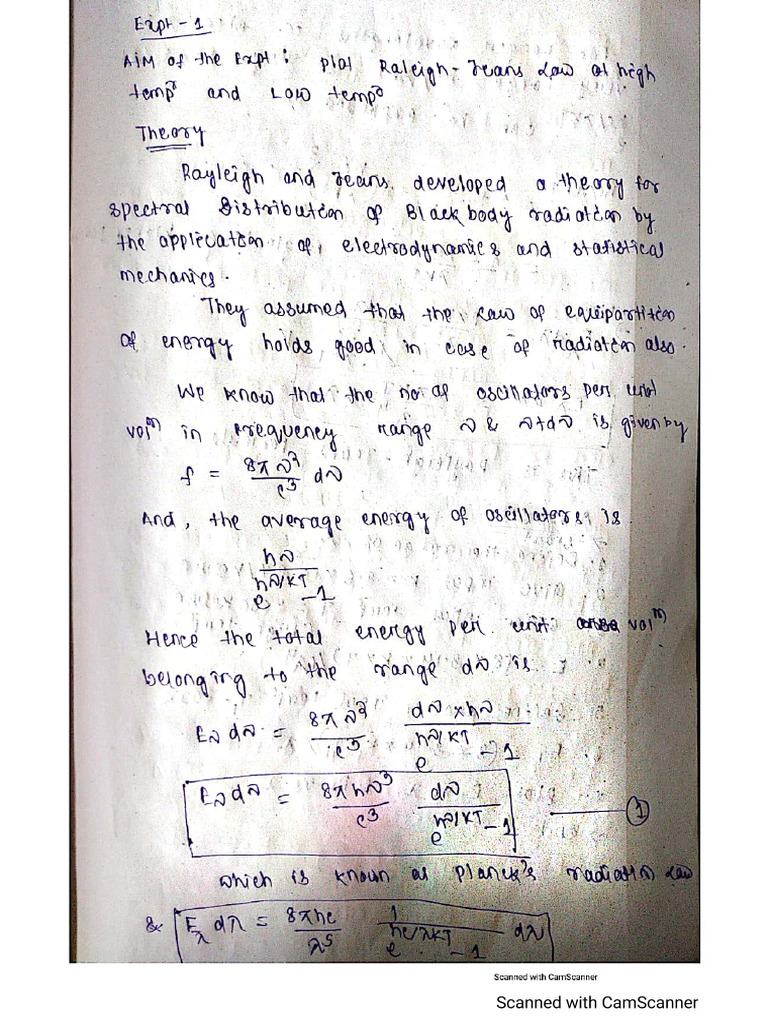 Expt - 1
Aim of the Expt : plot Raleigh-Jeans Law at high
temp^r and Low temp^r
Theory
Rayleigh and Jeans developed a theory for
spectral distribution of Black body radiation by
the application of electrodynamics and statistical
mechanics.
They assumed that the Law of equipartition
of energy holds good in case of radiation also.
We know that the no of oscillators per unit
vol^m in frequency range ν & ν+dν is given by
f = 8πν²/c³ dν
And, the average energy of oscillators is.
hν / (e^(hν/KT) - 1)
Hence the total energy per unit vol^m
belonging to the range dν is.
E_ν dν = 8πν²/c³ dν×hν / (e^(hν/KT) - 1)
E_ν dν = 8πhν³/c³ dν / (e^(hν/KT) - 1) ①
which is known as planck's radiation Law
& E_λ dλ = 8πhc/λ⁵ 1/(e^(hc/λKT) - 1) dλ
Scanned with CamScanner
Scanned with CamScanner